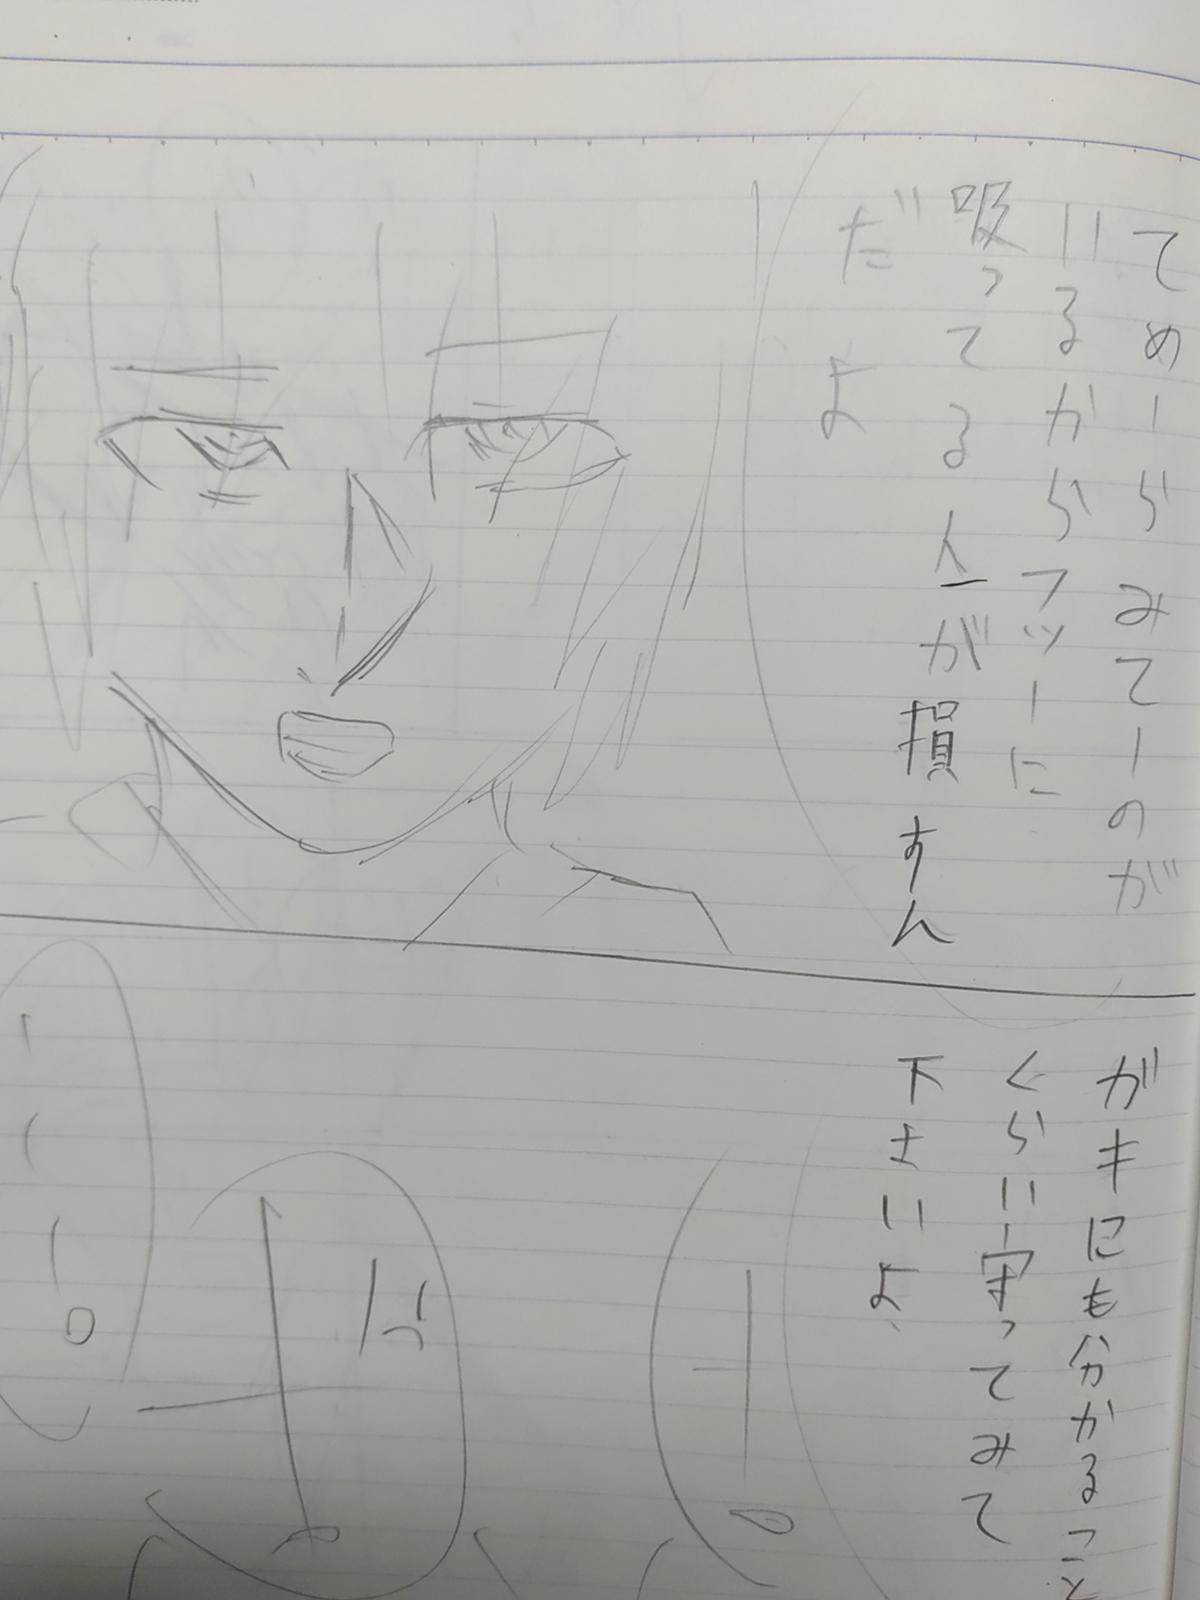 てめーらみてーのが
いるからフツーに
吸ってる人が損すん
だよ
ガキにも分かること
くらい守ってみて
下さいよ、